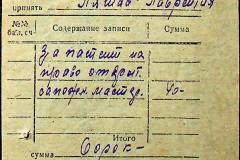 принять Ляшко Лаврентия
№№ бал. сч. Содержание записи Сумма
За патент на
право открыт.
сапожн. мастер. 40-
Итого
сумма Сорок-